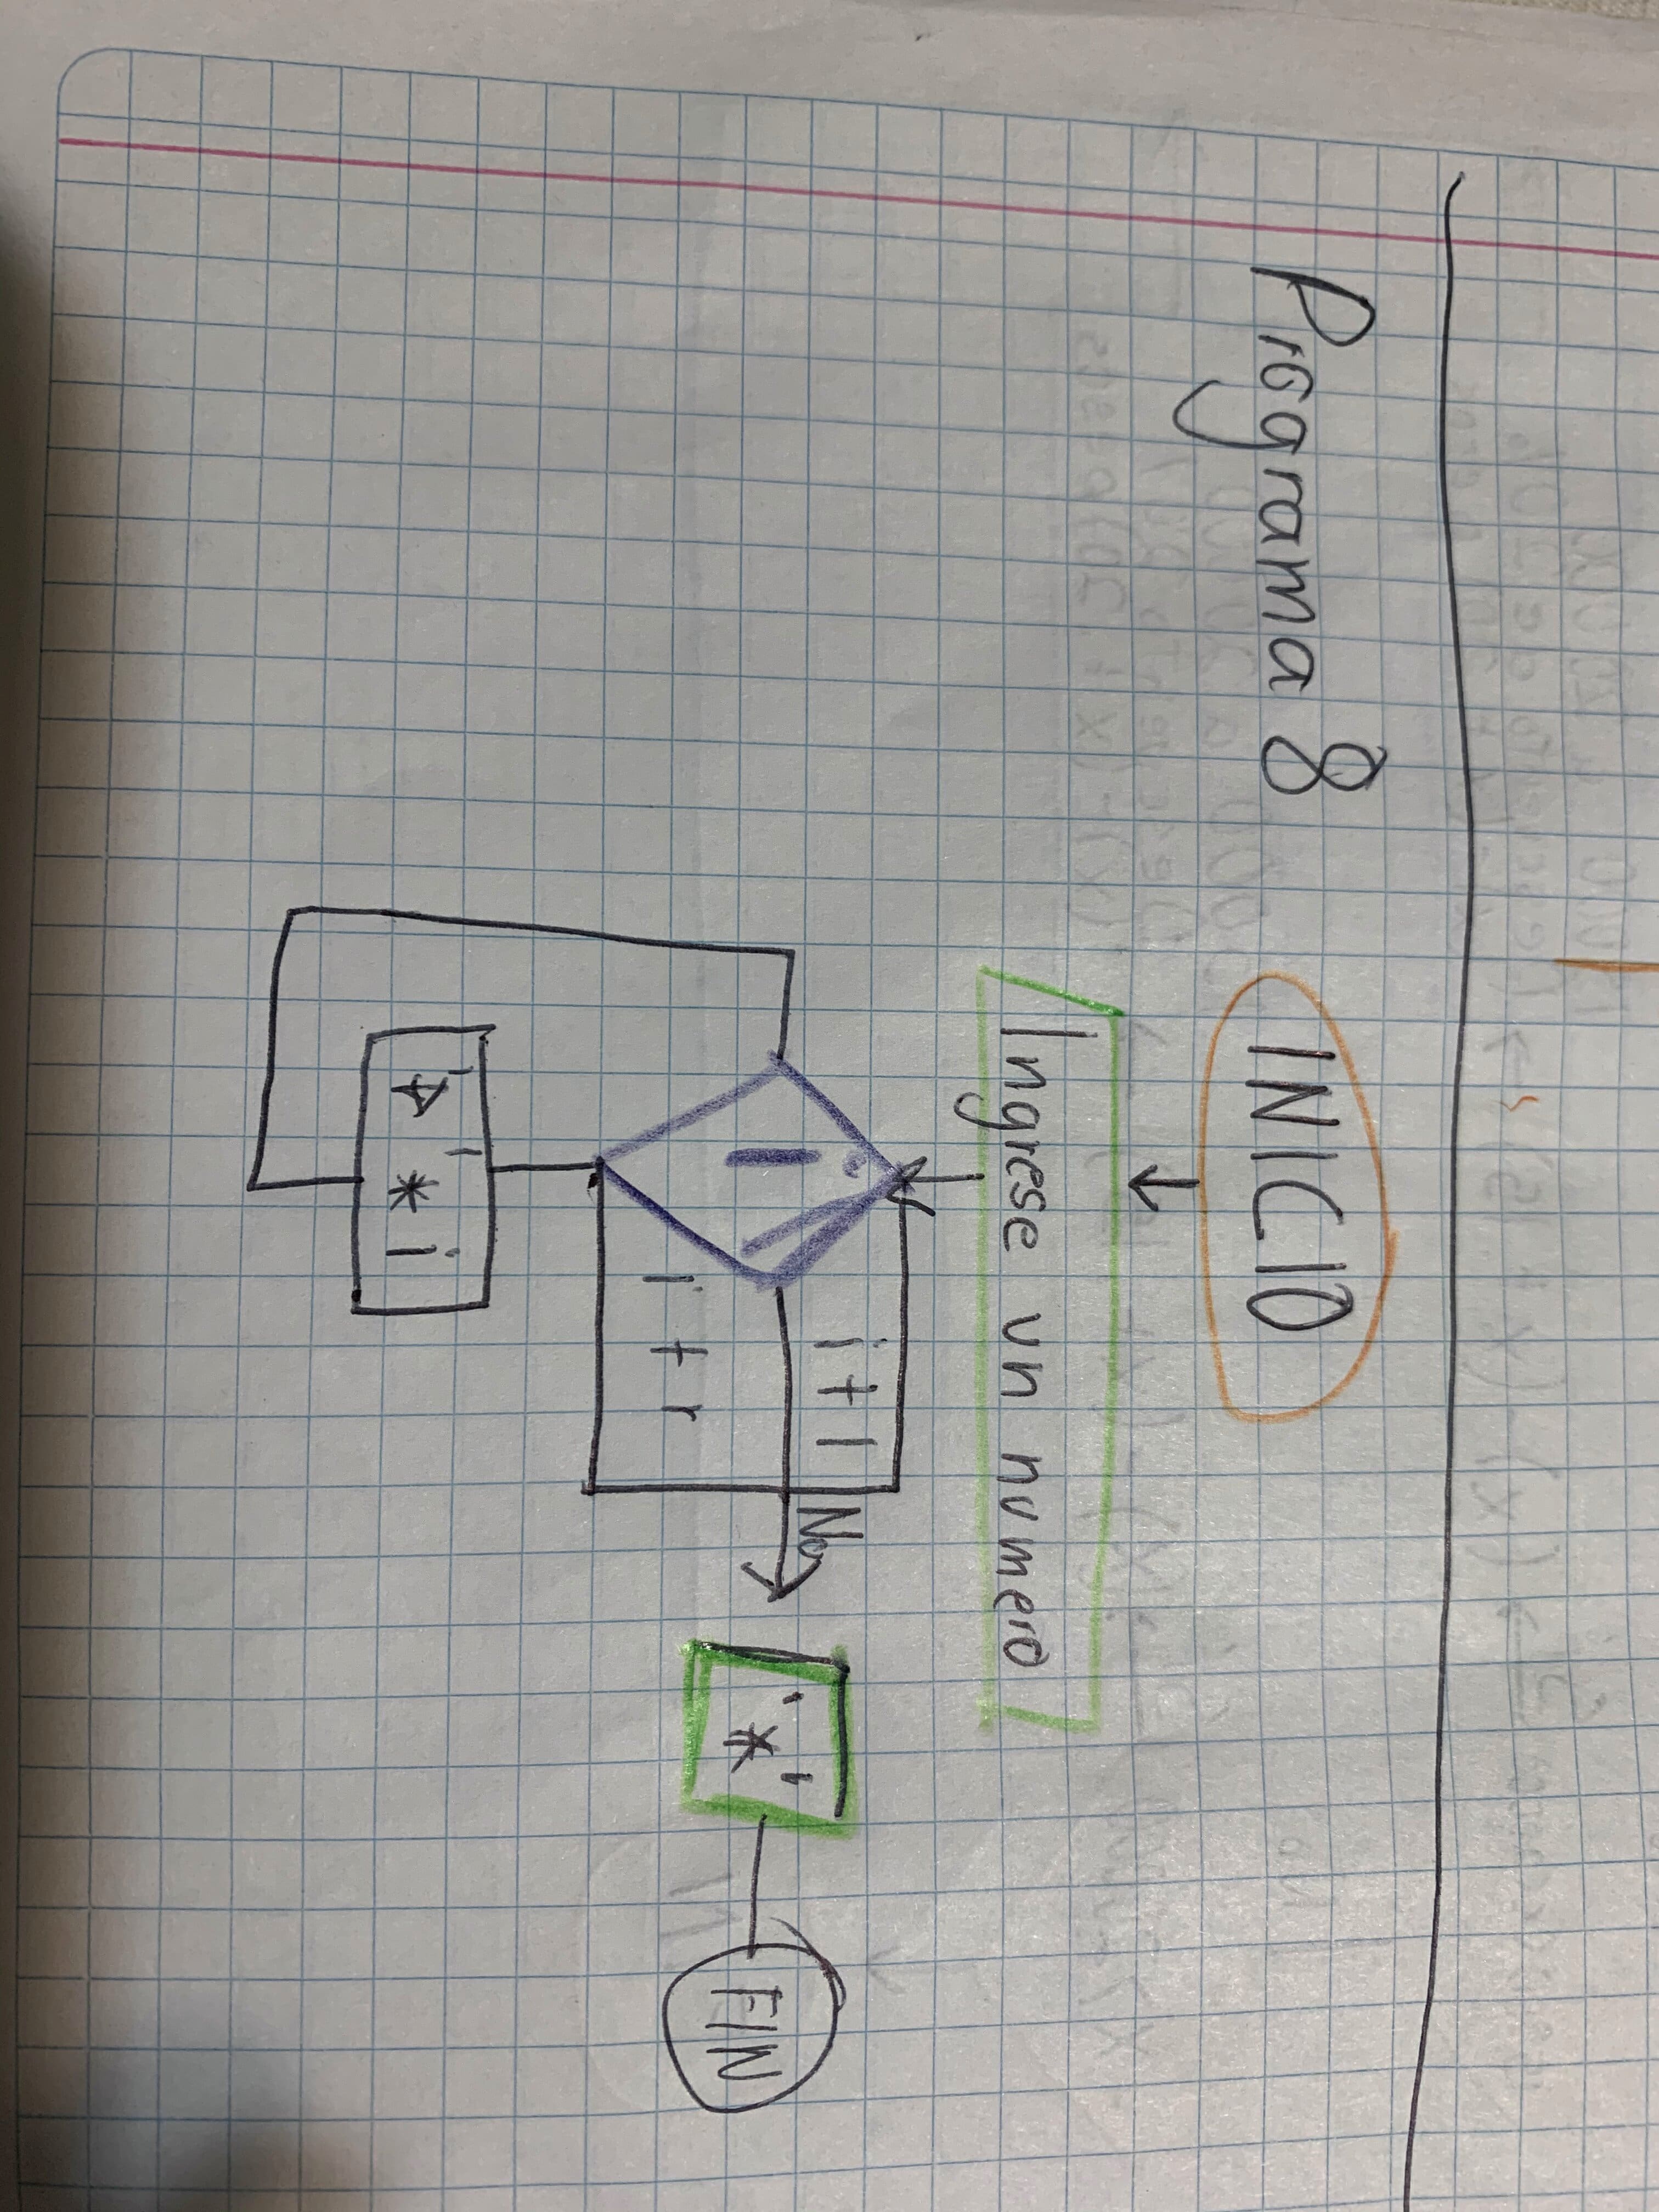 Programa 8
INICIO
Ingrese un numero
i + 1
No
i + r
' * '
FIN